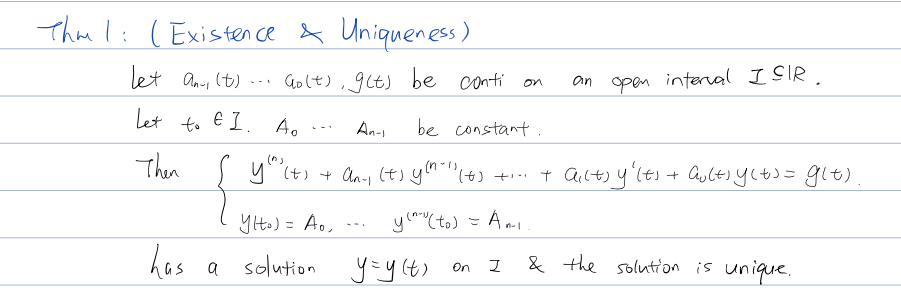 Thm 1: (Existence & Uniqueness)
Let aₙ₋₁(t) ... a₀(t), g(t) be conti on an open interval I ⊆ ℝ.
Let t₀ ∈ I. A₀ ... Aₙ₋₁ be constant.
Then { y⁽ⁿ⁾(t) + aₙ₋₁(t) y⁽ⁿ⁻¹⁾(t) + ... + a₁(t) y'(t) + a₀(t) y(t) = g(t).
y(t₀) = A₀, ... y⁽ⁿ⁻¹⁾(t₀) = Aₙ₋₁.
has a solution y = y(t) on I & the solution is unique.